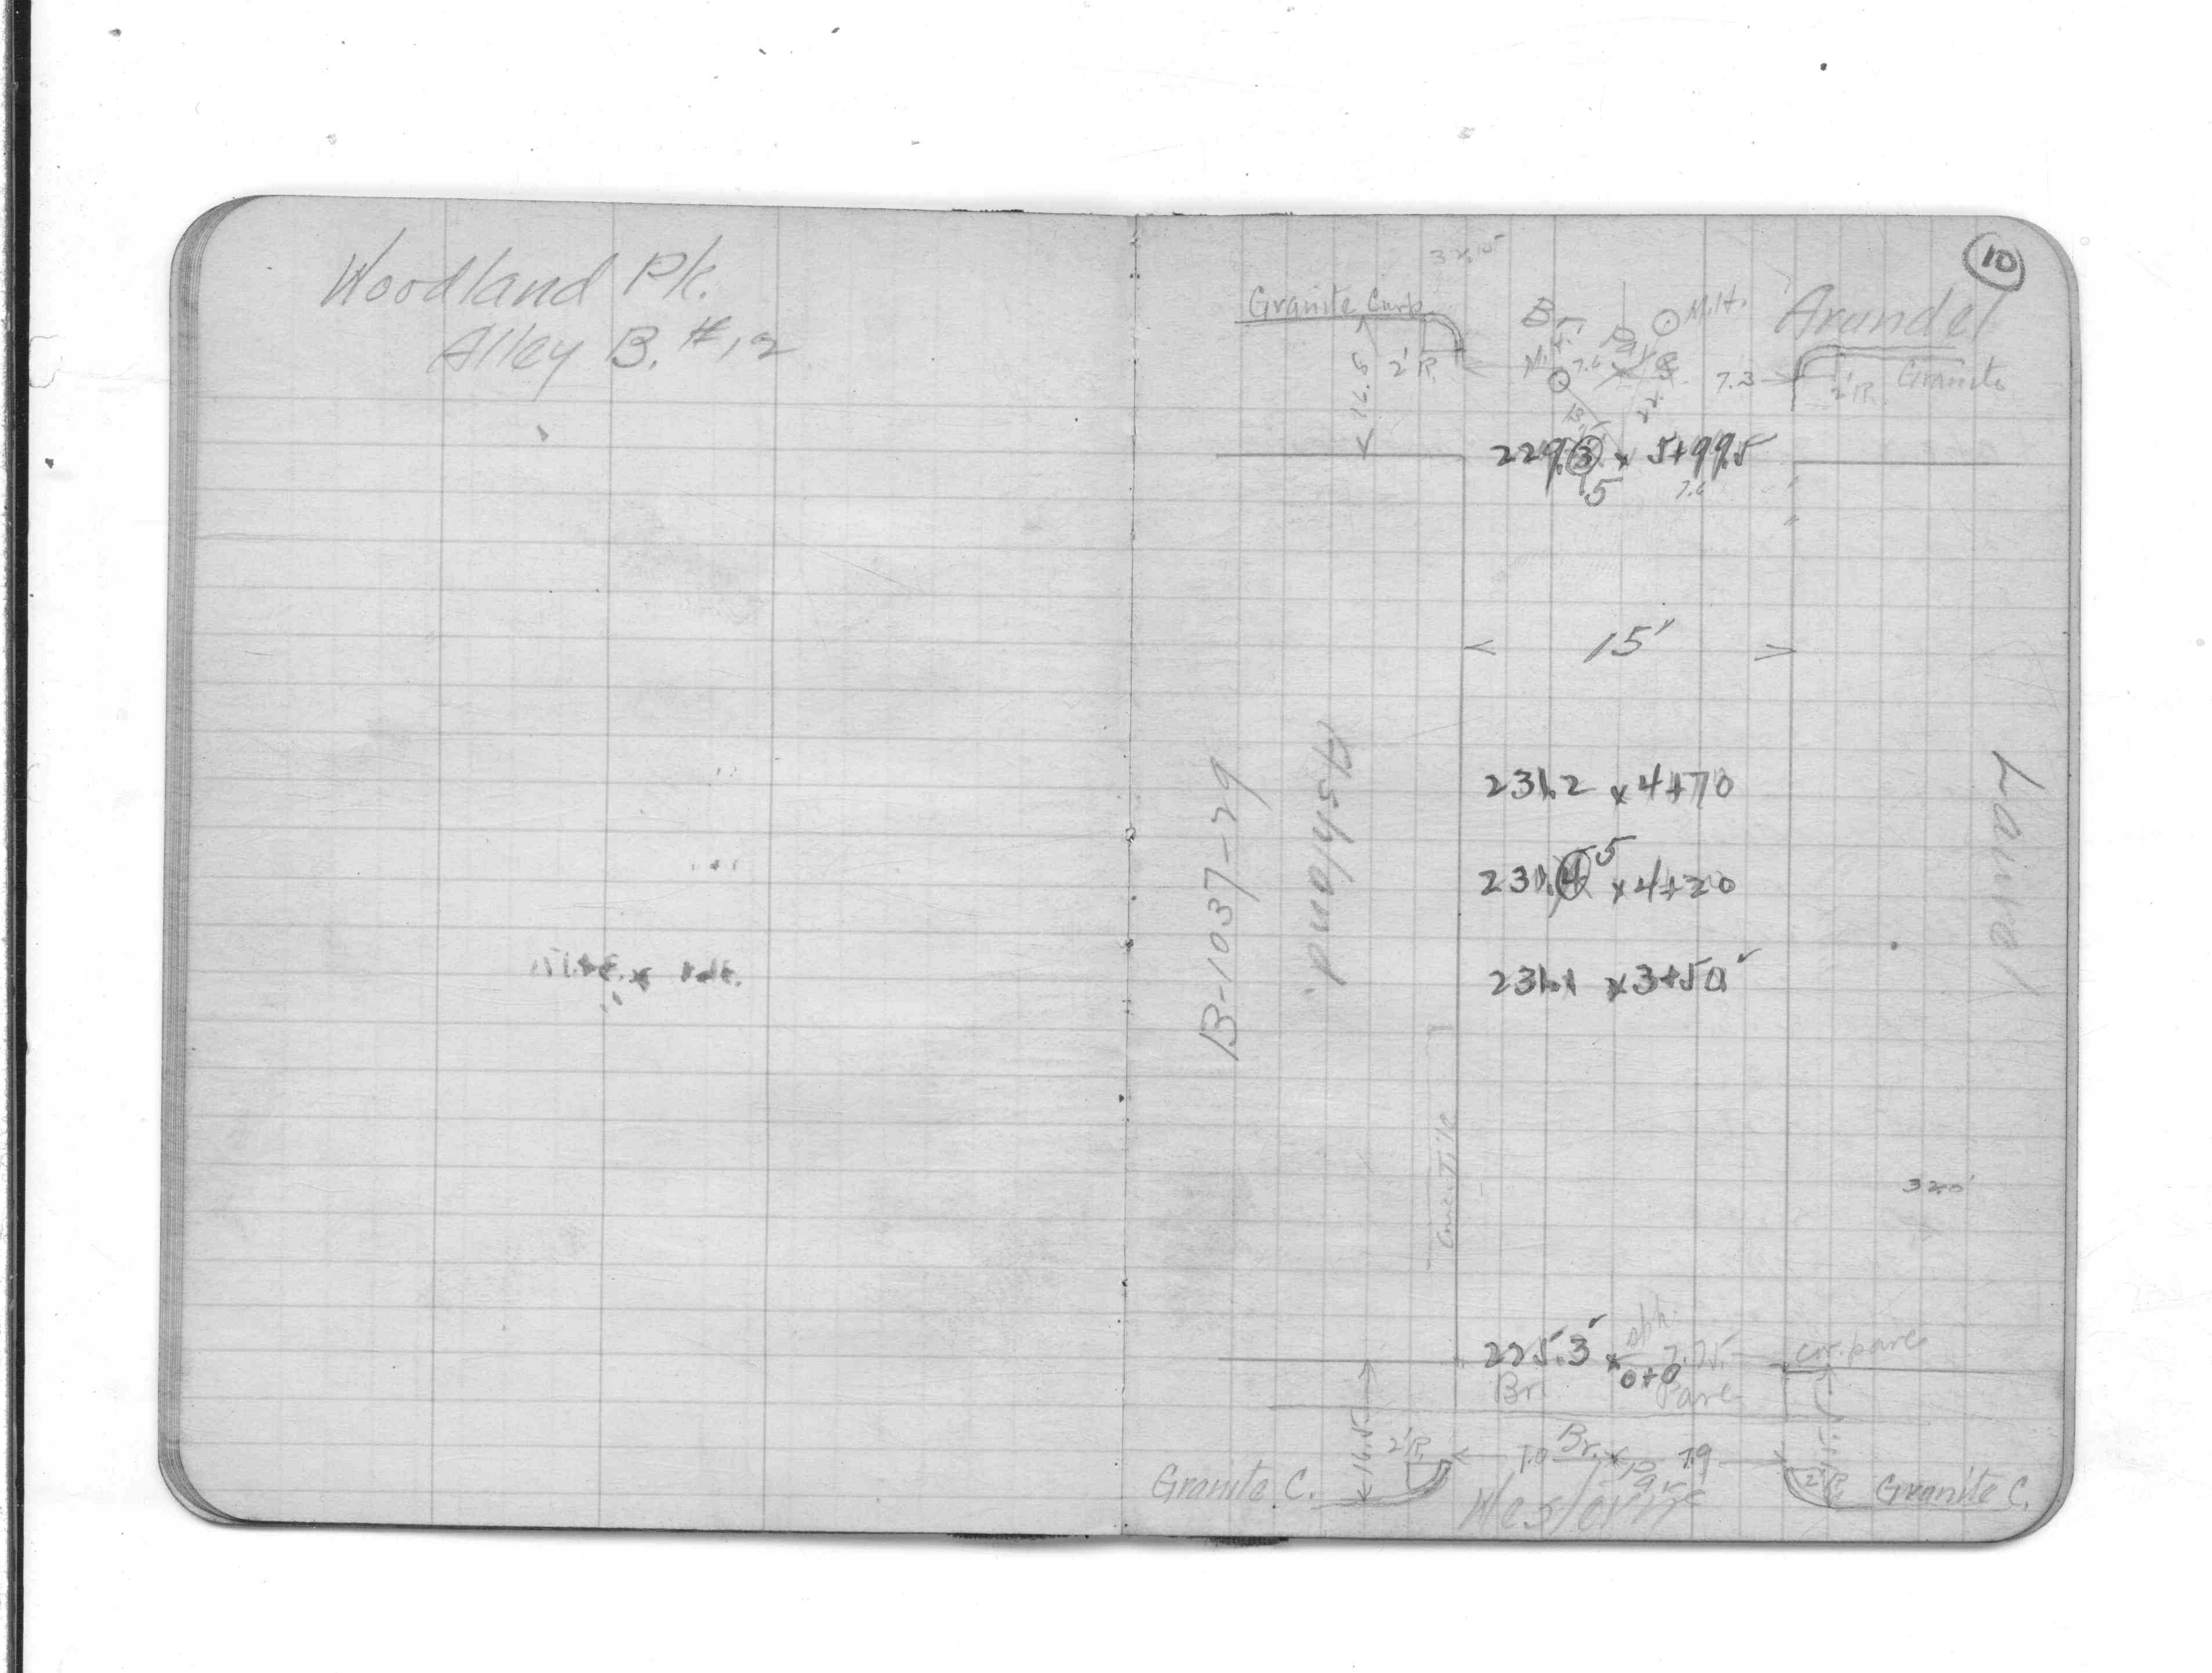 Woodland Pk.
Alley B. #12
10
Granite Curb
Br.
M.H.
Arundel
16.5
2' R.
7.6
7.3
2' R.
Granite
229.3 x 5+99.5
.5
7.6
15'
231.2 x 4+70
231.4 5 x 4+20
231.1 x 3+50
B-1037-29
Ashland.
Laurel
Conc. Tile
320
225.3 x 0+0
7.75
Br. Pave
16.5
2' R.
7.0 Br. x 7.9
2' R.
Granite C.
Western
Granite C.